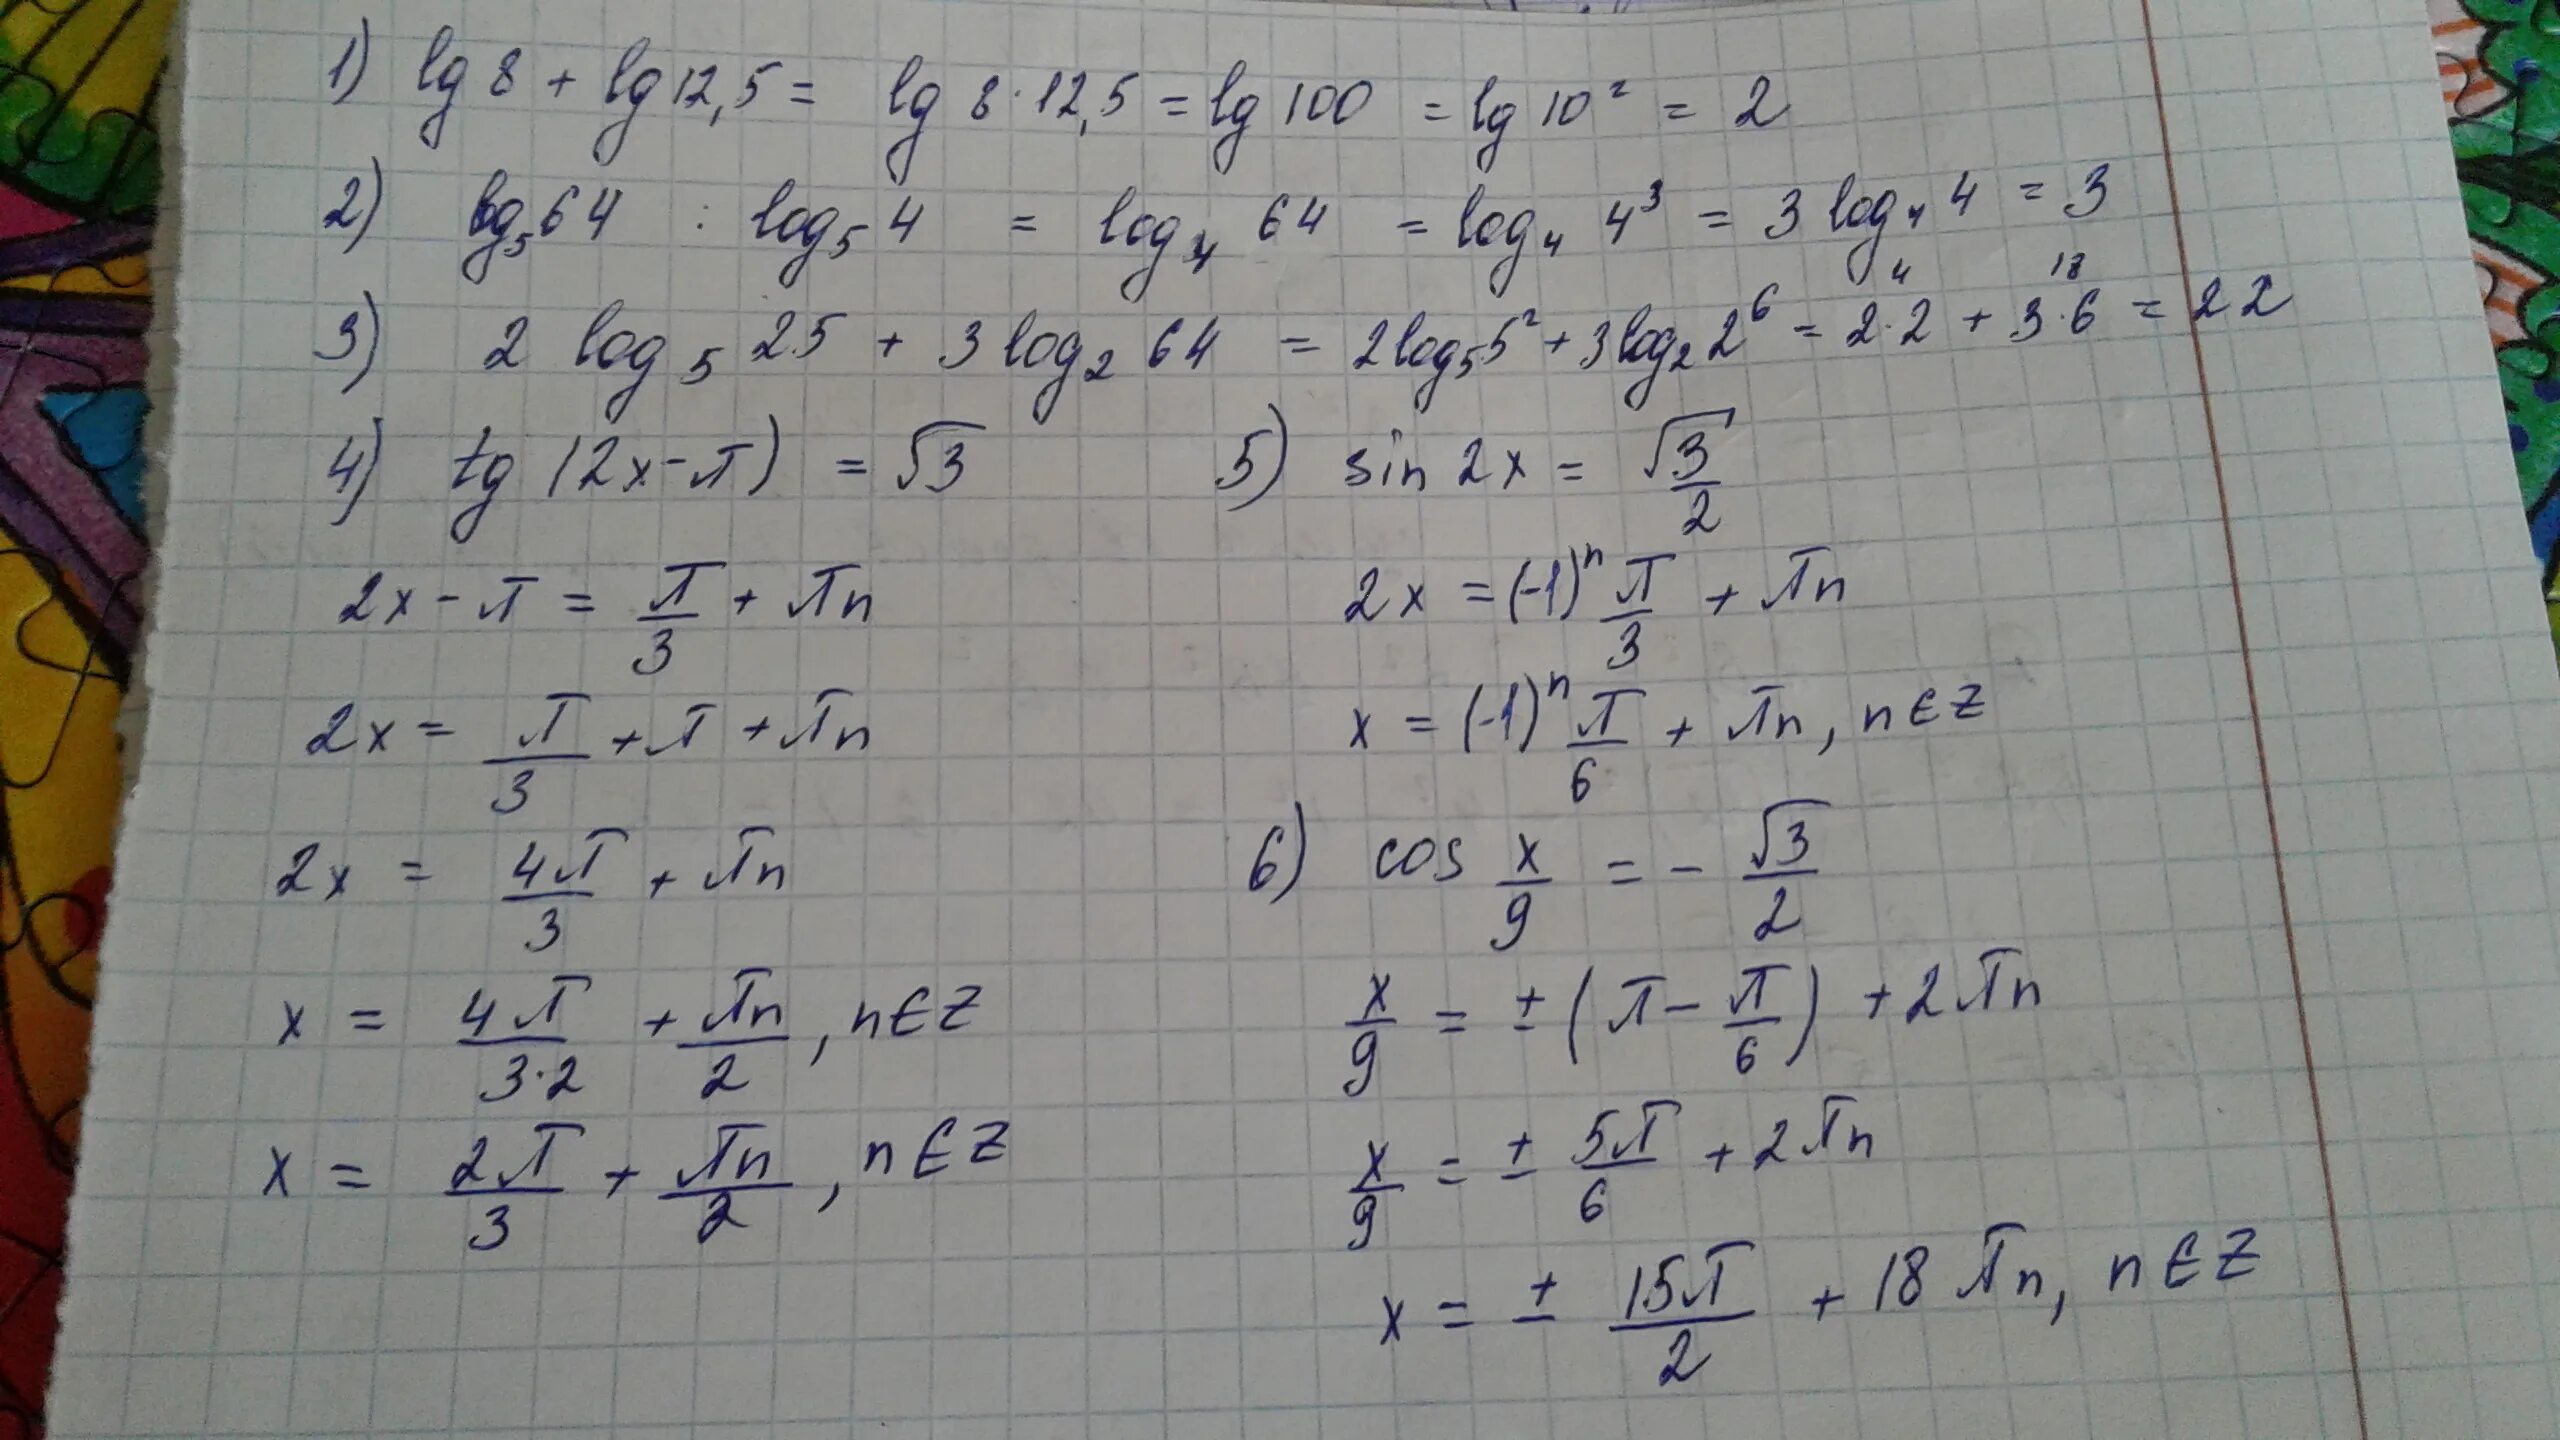 1) lg 8 + lg 12,5 = lg 8 · 12,5 = lg 100 = lg 10² = 2
2) log₅ 64 : log₅ 4 = log₄ 64 = log₄ 4³ = 3 log₄ 4 = 3
4 18
3) 2 log₅ 25 + 3 log₂ 64 = 2 log₅ 5² + 3 log₂ 2⁶ = 2·2 + 3·6 = 22
4) tg (2x - π) = √3
2x - π = π/3 + πn
2x = π/3 + π + πn
2x = 4π/3 + πn
x = 4π/3·2 + πn/2, n∈Z
x = 2π/3 + πn/2, n∈Z
5) sin 2x = √3/2
2x = (-1)ⁿ π/3 + πn
x = (-1)ⁿ π/6 + πn, n∈Z
6) cos x/9 = - √3/2
x/9 = ± (π - π/6) + 2πn
x/9 = ± 5π/6 + 2πn
x = ± 15π/2 + 18πn, n∈Z